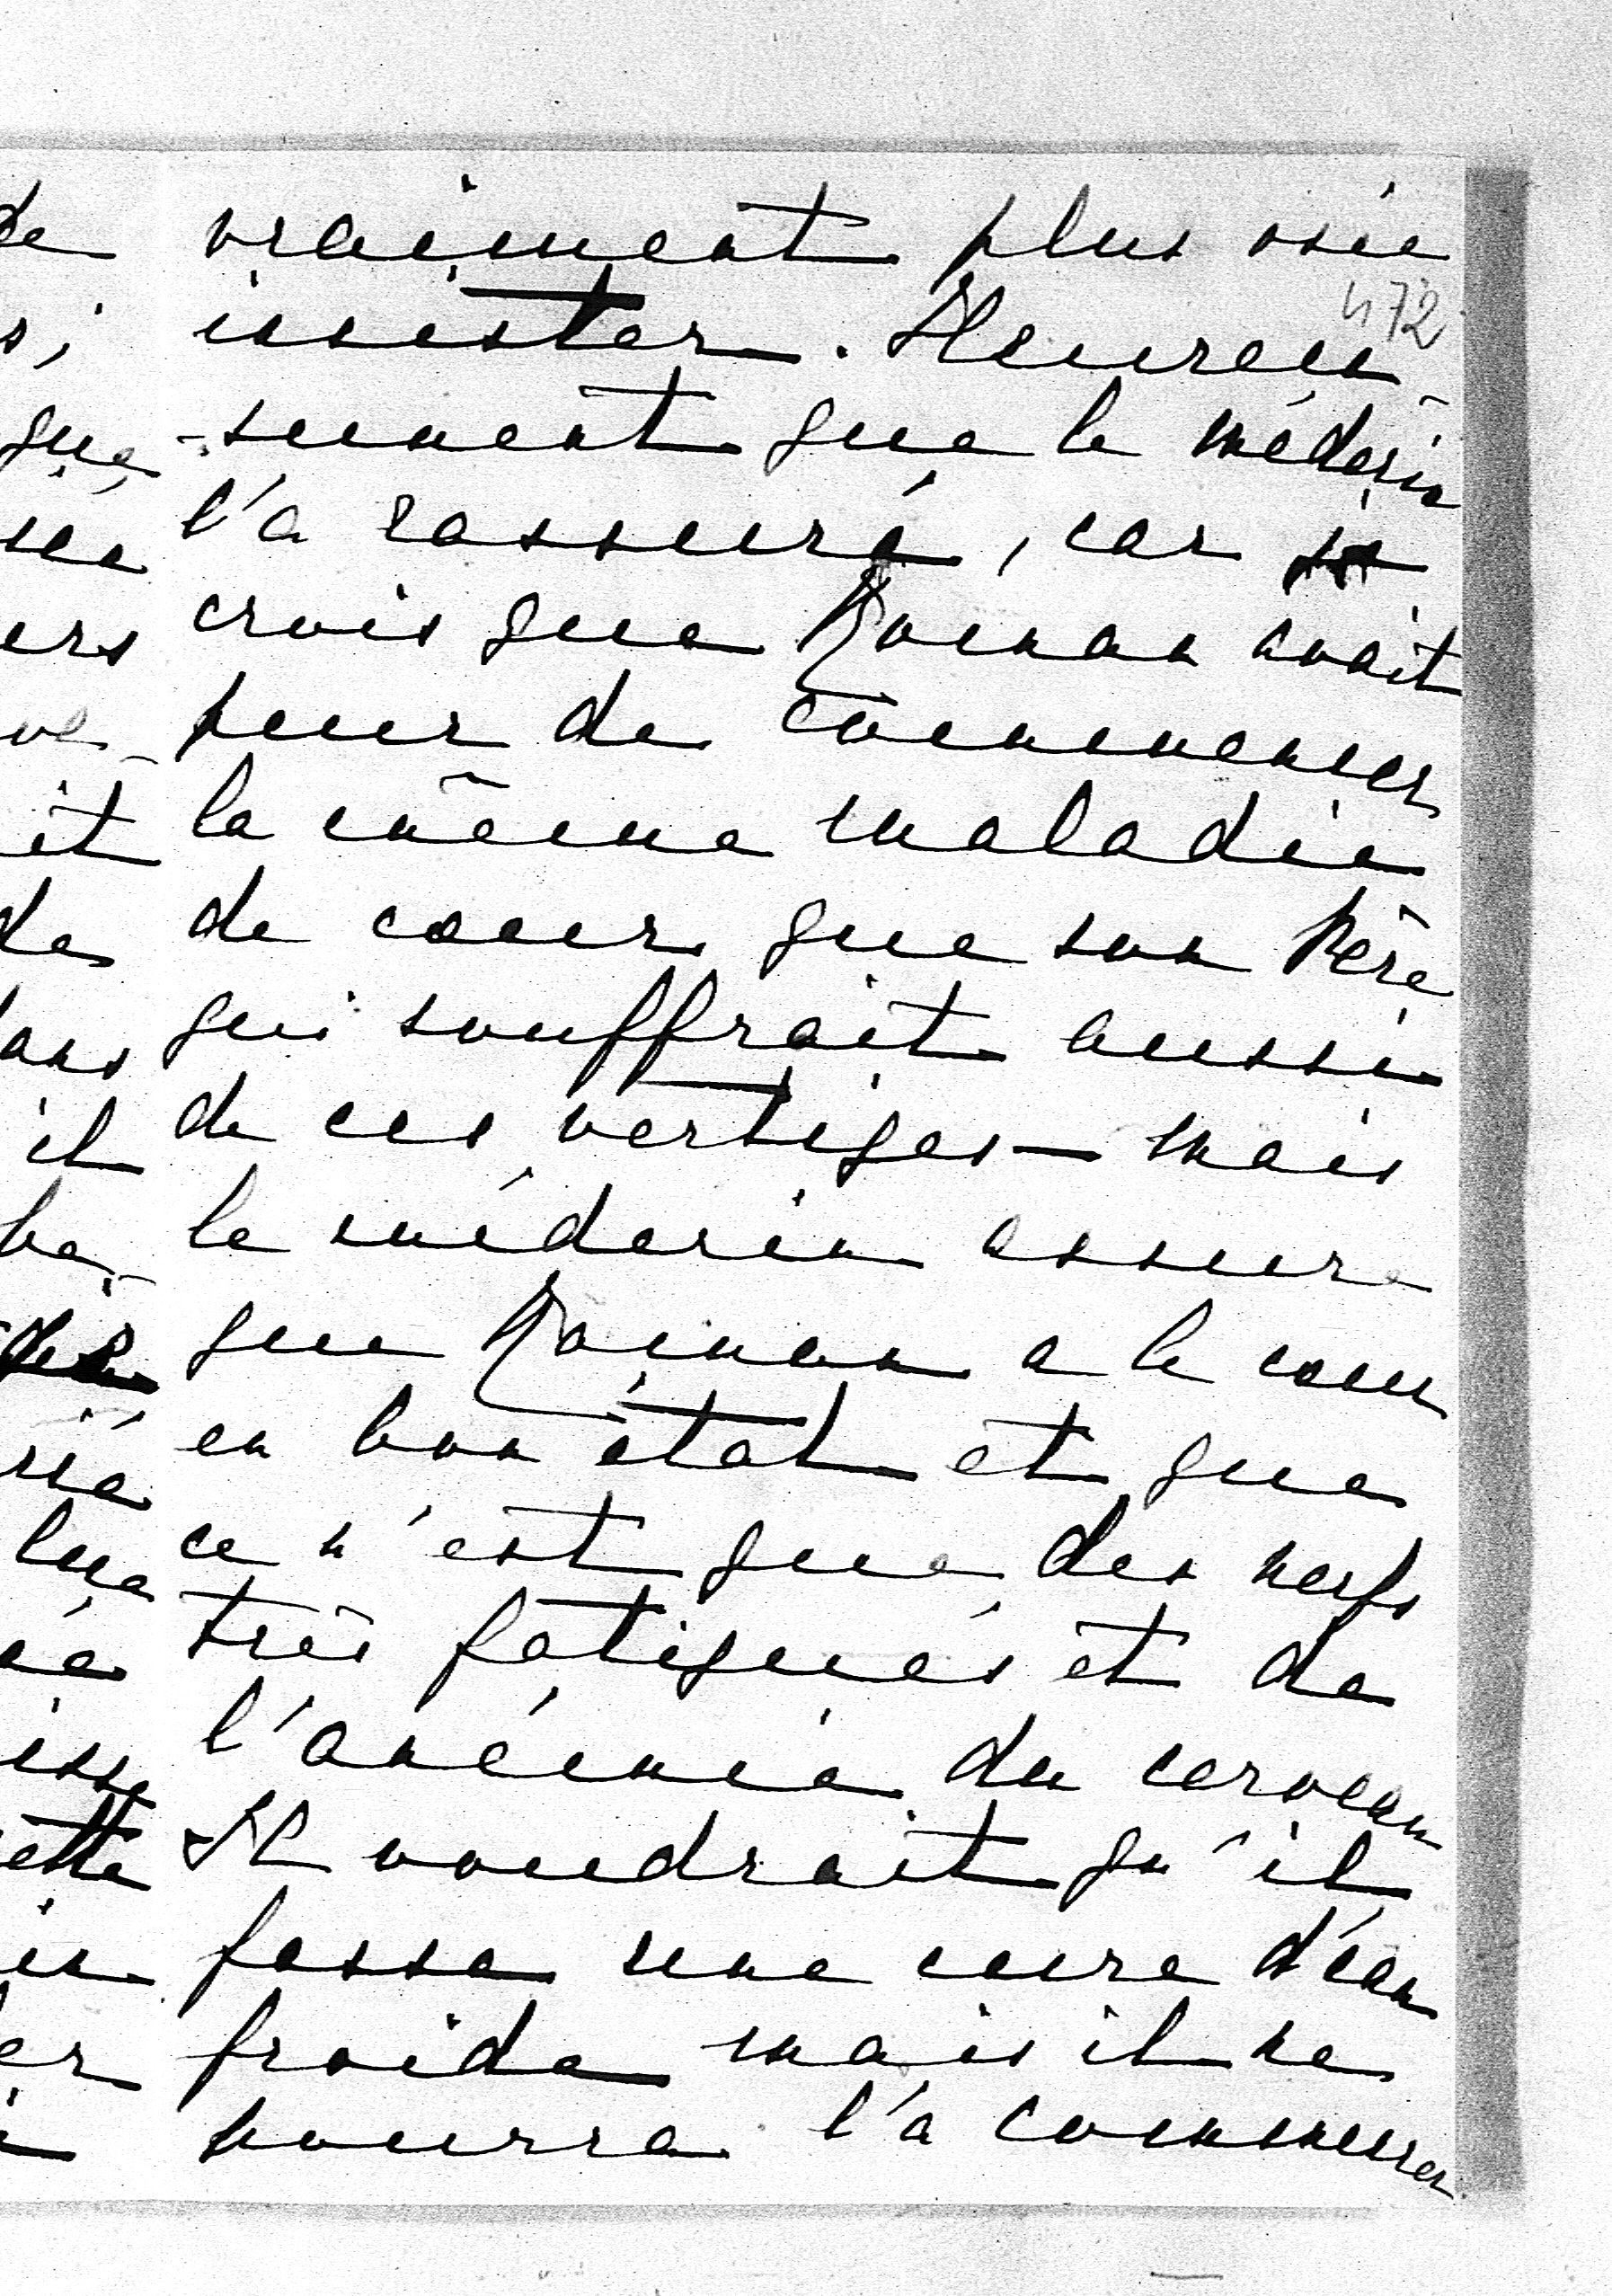 vraiment plus osée
472
insister. Heureu-
-sement que le médecin
l'a rassuré, car je
crois que Roman avait
peur de commencer
la même maladie
de coeur que son Père
qui souffrait aussi
de ces vertiges — mais
le médecin assure
que Roman a le coeur
en bon état et que
ce n'est que des nerfs
très fatigués et de
l'anémie du cerveau
Il voudrait qu'il
fasse une cure d'eau
froide mais il ne
pourra l'a commencer